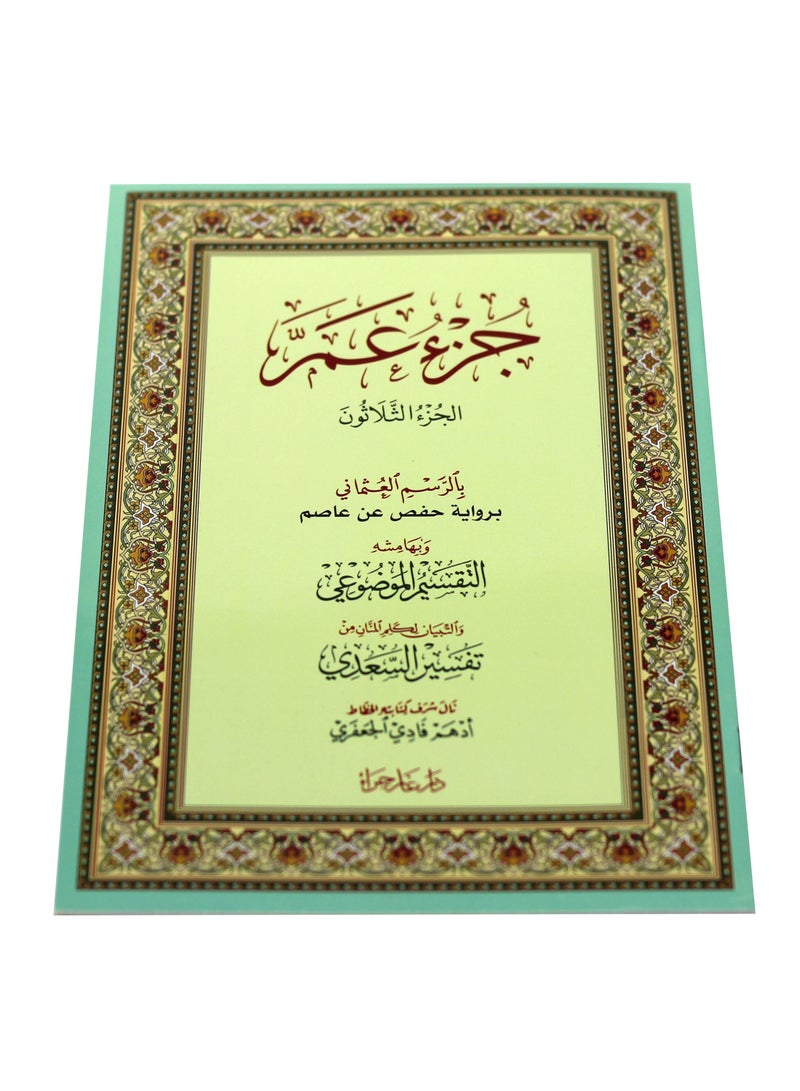 جُزْءُ عَمَّ
الجُزْءُ الثَّلَاثُونَ
بِٱلرَّسْمِ ٱلْعُثْمَانِي
برواية حفص عن عاصم
وَبِهَامِشِهِ
التَّقْسِيْمُ المَوْضُوْعِي
وَالتِّبْيَان لِكَلِمِ المَنَّانِ مِنْ
تَفْسِيْرِ السَّعْدِي
نَالَ شَرَفَ كِتَابَتِهِ الخَطَّاط
أَدْهَم فَادِي ٱلْجَعْفَرِي
دار غار حراء